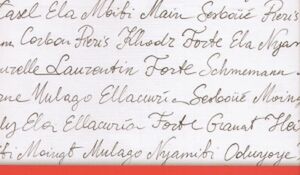 Casel Ela Mbibi Main Sesboüé Prezis
Corbon Prezis Jlhodz Forte Ela Nyam
uzelle Laurentin Forte Schmemann
ne Mulago Ellacuría Sesboüé Moing
Ela Ellacuría Forte Granat Hei
bi Moingt Mulago Nyamiti Oduyoye